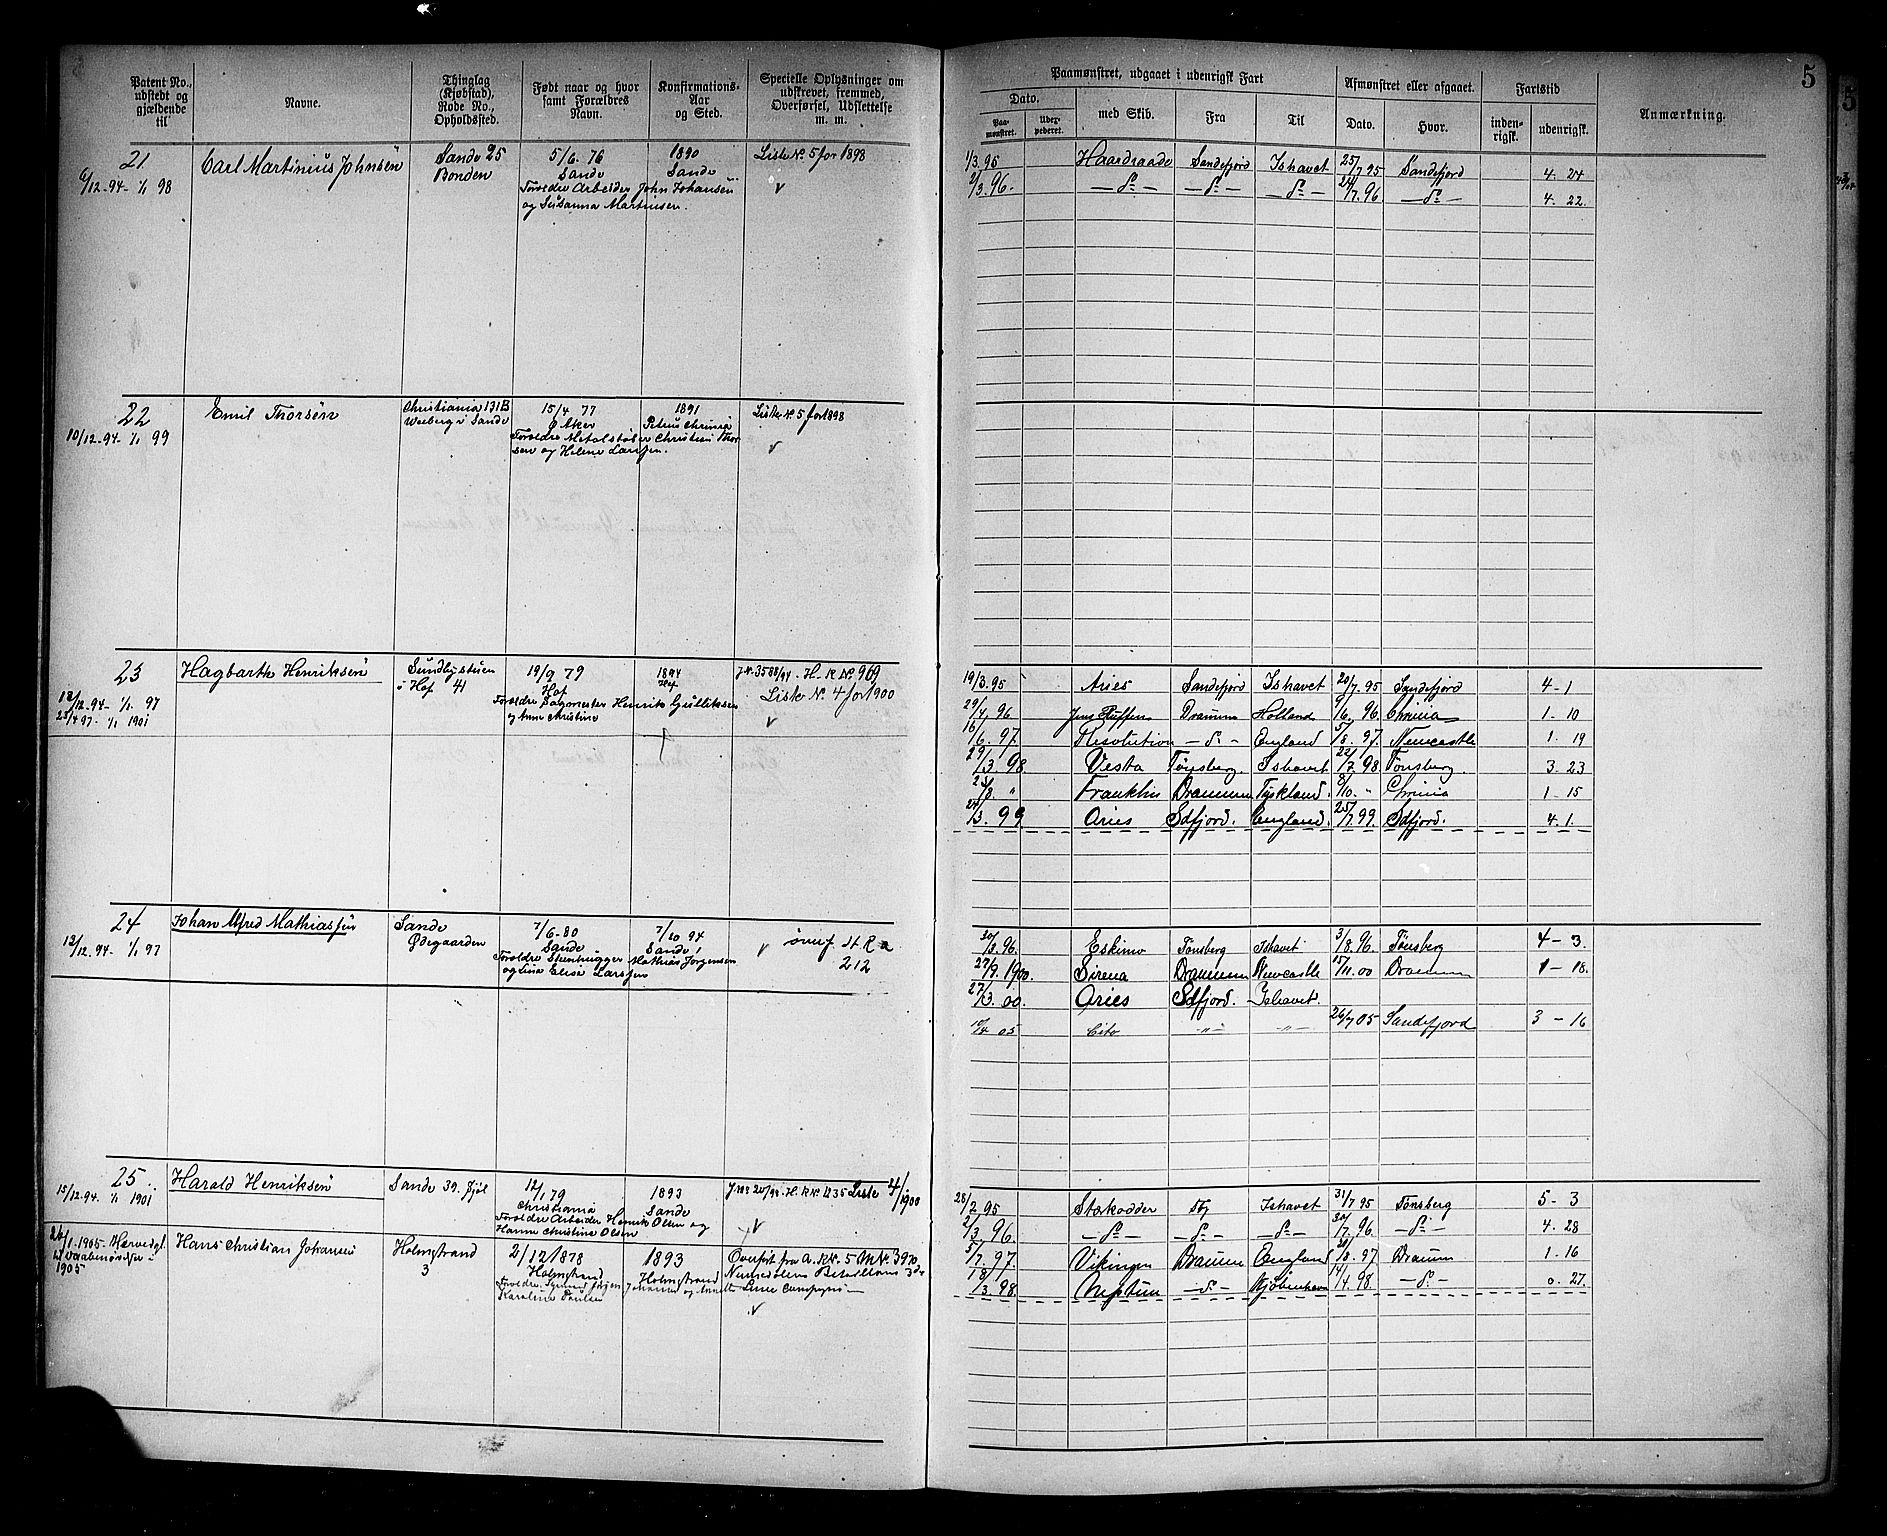 5
Patent No., udstedt og gjældende til
Navne.
Thinglag (Kjøbstad), Rode No., Opholdssted.
Født naar og hvor samt Forældres Navn.
Konfirmations-Aar og Sted.
Specielle Oplysninger om udskrevet, fremmed, Overførsel, Udslettelse m. m.
Paamønstret, udgaaet i udenrigsk Fart
Afmønstret eller afgaaet.
Fartstid
Anmærkning.
Dato.
Paa-mønstret.
med Skib.
Fra
Til
Dato.
Hvor.
inden-rigsk.
udenrigsk.
21
6/12.94 - 1/1 98
Carl Martinius Johnsen
Sande 25
Bonden
5/6. 76
Sande
1890
Sande
Forældre Arbeider John Johansen
og Susanna Martinsen.
Liste No. 5 for 1898
1/3.95 Haardraade Sandefjord Ishavet 25/7 95 Sandefjord 4. 24
2/3.96. —do— —do— —do— 24/7.96 —do— 4. 22.
22
10/12.94 - 1/1 99
Emil Thorsen
Christiania 131B
15/4 77
Aker
1891
Forældre Metalstøber Christian Thor
sen og Helene Larssen.
Liste No. 5 for 1898
23
12/12.94 - 1/1. 97
25/4 97 - 1/1 1901
Hagbarth Henriksen
i Hof 41
19/9 79
Hof
1894
Hof
Forældre Henrik Gulliksen
og Anne Christine
J. No. 3588/94. H. R No. 969
Liste No. 4 for 1900
19/3.95 Aries Sandefjord Ishavet 20/7.95 Sandefjord 4-1
29/4.96 Drammen Holland 9/6.96 Chrinia 1-10
16/6.97. Resolution —do— England 5/8.97. Newcastle 1. 19
29/3.98. Vesta Tønsberg. Ishavet 22/7.98 Tønsberg. 3. 23
Franklin Drammen Tyskland. 8/10. " Chrinia 1-15
24/3.99 Aries Sdfjord. England. 25/7.99. Sdfjord. 4.1.
24
12/12.94 - 1/1 97
Johan Alfred Mathiassen
Sande
Ødegaarden
7/6-80
Sande
7/10 94
Sande
Forældre Stenhugger Mathias Jørgensen
og Lina Elise Larssen
212
30/3.96. Eskimo Tønsberg Ishavet 3/8.96. Tønsberg 4-3.
27/9.1900. Sirena Drammen Newcastle 15/11.00 Drammen 1-18.
27/3.00. Aries Sdfjord. Ishavet.
10/4 05 Cito -"- -"- 26/7 05 Sandefjord 3-16
25.
15/12.94. 1/1 1901
Harald Henriksen
Sande 39.
12/1 79
Christiania
1893
Sande
Forældre Arbeider Henrik Olsen og
Hanne Christine Olsen
Liste 4/1900
28/2 95 Stækodder Tbg Ishavet 31/7 95 Tønsberg 5-3
2/3.96. —do— —do— —do— 30/7.96. —do— 4. 28
5/7.97. Vikingen Drammen England 20/8.97 Drammen 1-16
18/3.98. Neptun —do— Kjøbenhavn 14/4.98. —do— 0. 27.
26/1-1905 -
1905
Hans Christian Johansen
Holmestrand
3
2/12 1878
Holmestrand
1893
Holmestrand
Karoline Paulsen
Overført fra A. R No. 5 M No. 3970
Linie Compagni